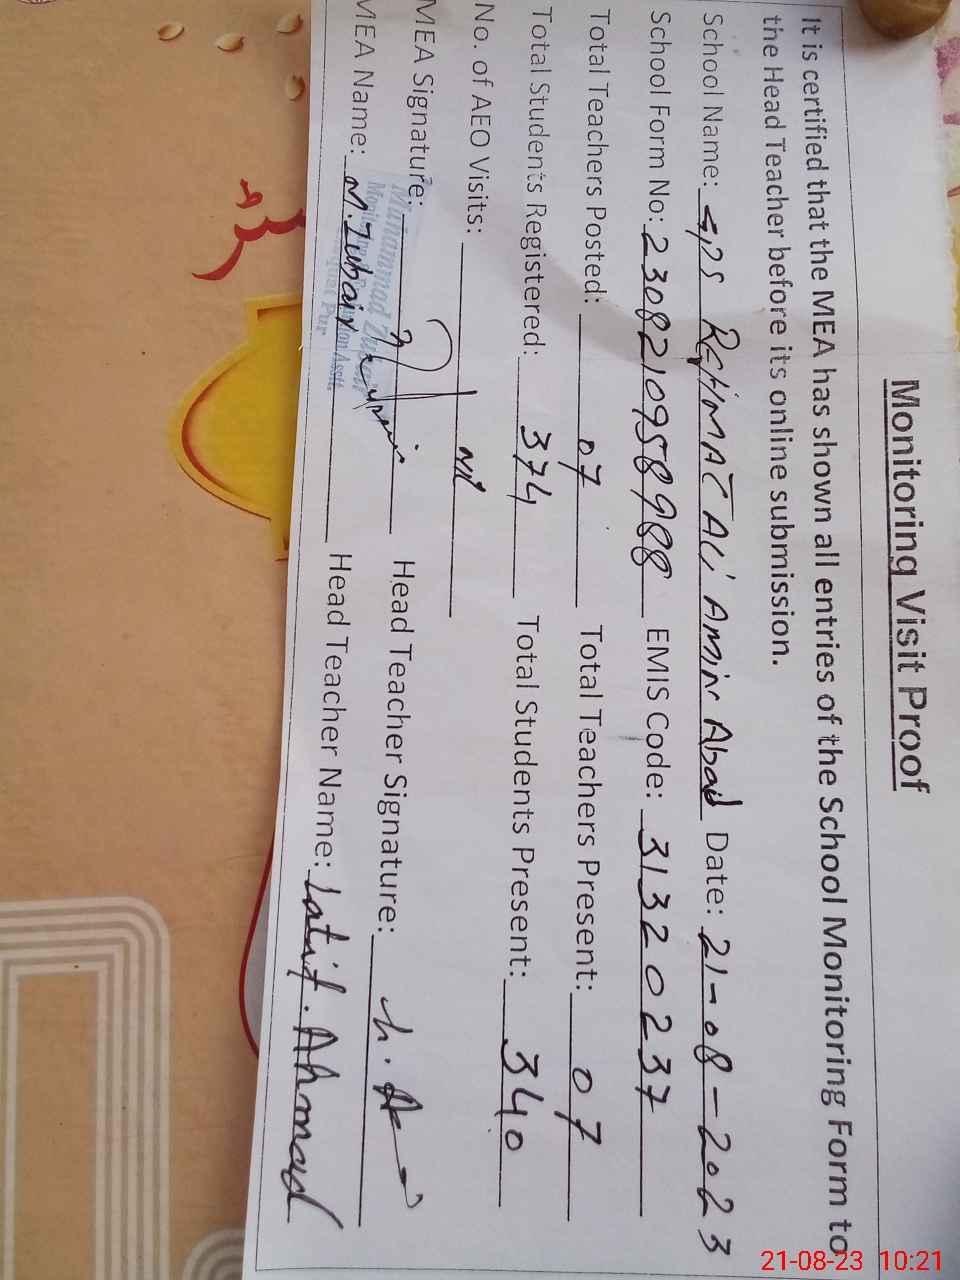 Monitoring Visit Proof
It is certified that the MEA has shown all entries of the School Monitoring Form to
the Head Teacher before its online submission.
School Name: GPS REHMAT ALI AMIR Abad Date: 21-08-2023
School Form No: 2308210958988 EMIS Code: 31320237
Total Teachers Posted: 07 Total Teachers Present: 07
Total Students Registered: 374 Total Students Present: 340
No. of AEO Visits: Nil
MEA Signature: Head Teacher Signature:
MEA Name: M.Zubair Head Teacher Name: Latif.Ahmad
Muhammad Zubair
21-08-23 10:21